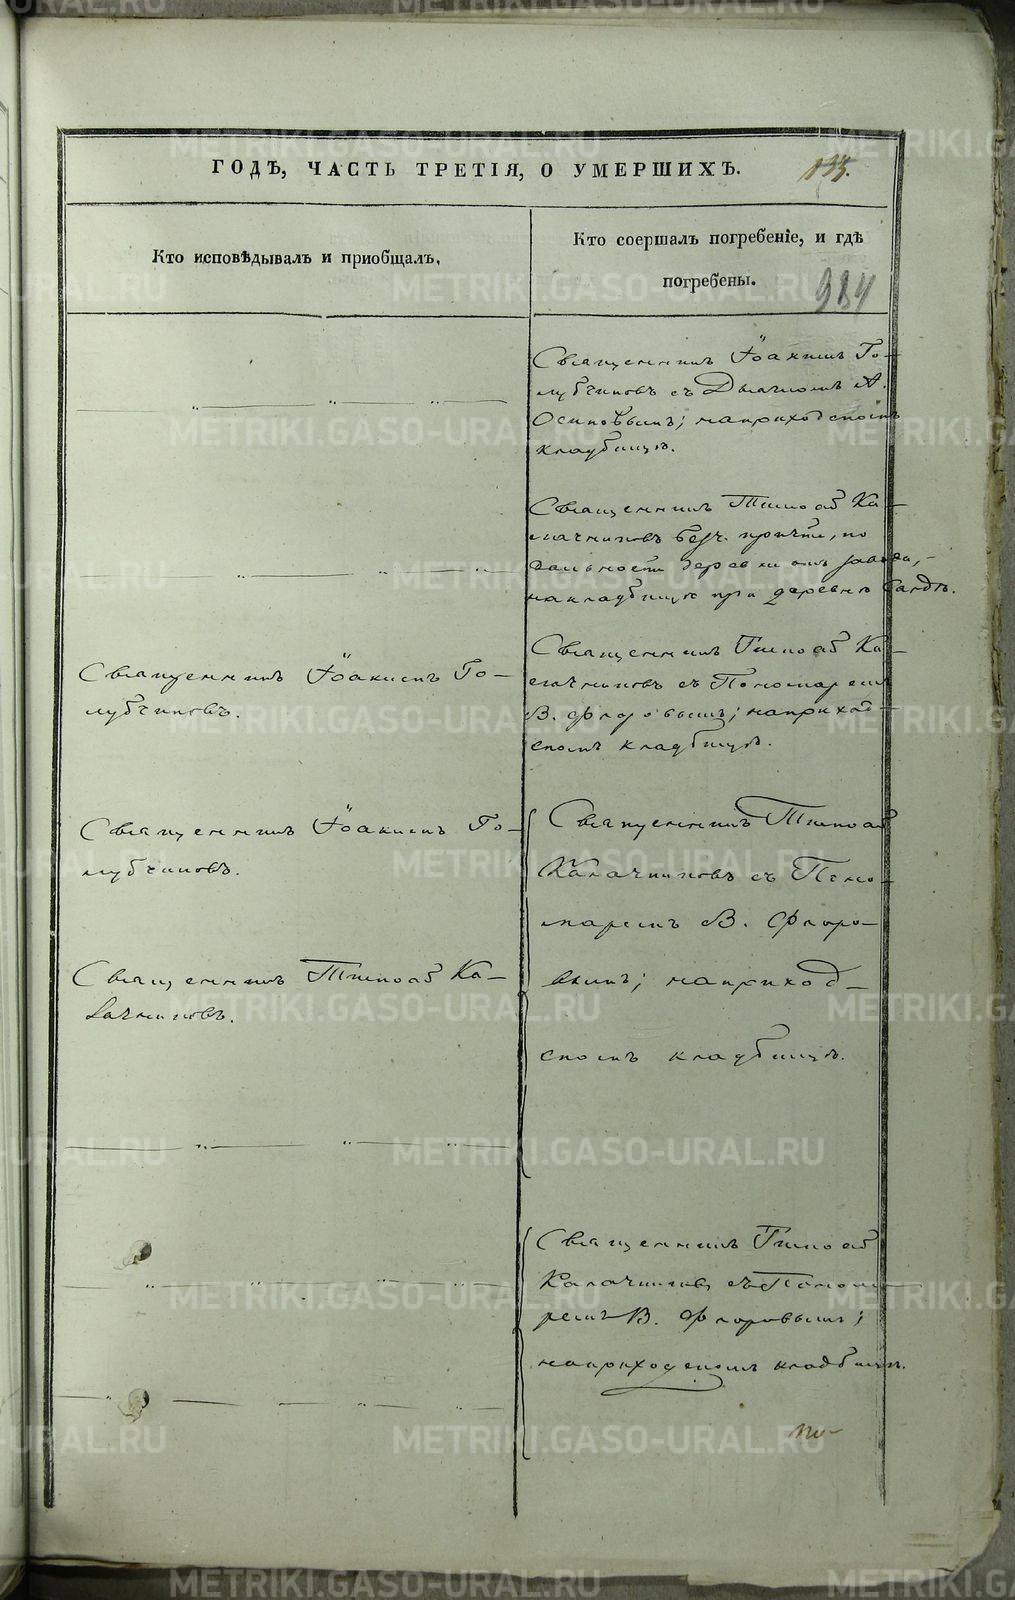 ГОДЪ, ЧАСТЬ ТРЕТІЯ, О УМЕРШИХЪ.
135.
Кто исповѣдывалъ и приобщалъ.
Кто соершалъ погребеніе, и гдѣ
погребены.
984
Священникъ Іоакимъ Го-
лубчиковъ съ Дьячкомъ А.
Осиповымъ; на приходскомъ
кладбищѣ.
Священникъ Тимоѳей Ка-
лачниковъ безъ причта, по
дальности деревни отъ завода,
на кладбищѣ при деревнѣ
Священникъ Іоакимъ Го-
лубчиковъ.
Священникъ Тимоѳей Ка-
лачниковъ съ Пономаремъ
В. Флоровымъ; на приход-
скомъ кладбищѣ.
Священникъ Іоакимъ Го-
лубчиковъ.
Священникъ Тимоѳей Ка-
лачниковъ.
Священникъ Тимоѳей
Калачниковъ съ Поно-
маремъ В. Флоро-
вымъ; на приход-
скомъ кладбищѣ.
Священникъ Тимоѳей
Калачниковъ съ Понома-
ремъ В. Флоровымъ;
на приходскомъ кладбищѣ.
METRIKI.GASO-URAL.RU